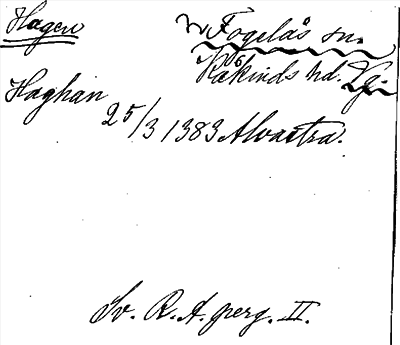 Hagen
V Fogelås sn.
Kåkinds hd. Vgl.
Haghan
25/3 1383 Alvastra.
Sv. R. A. perg. II.